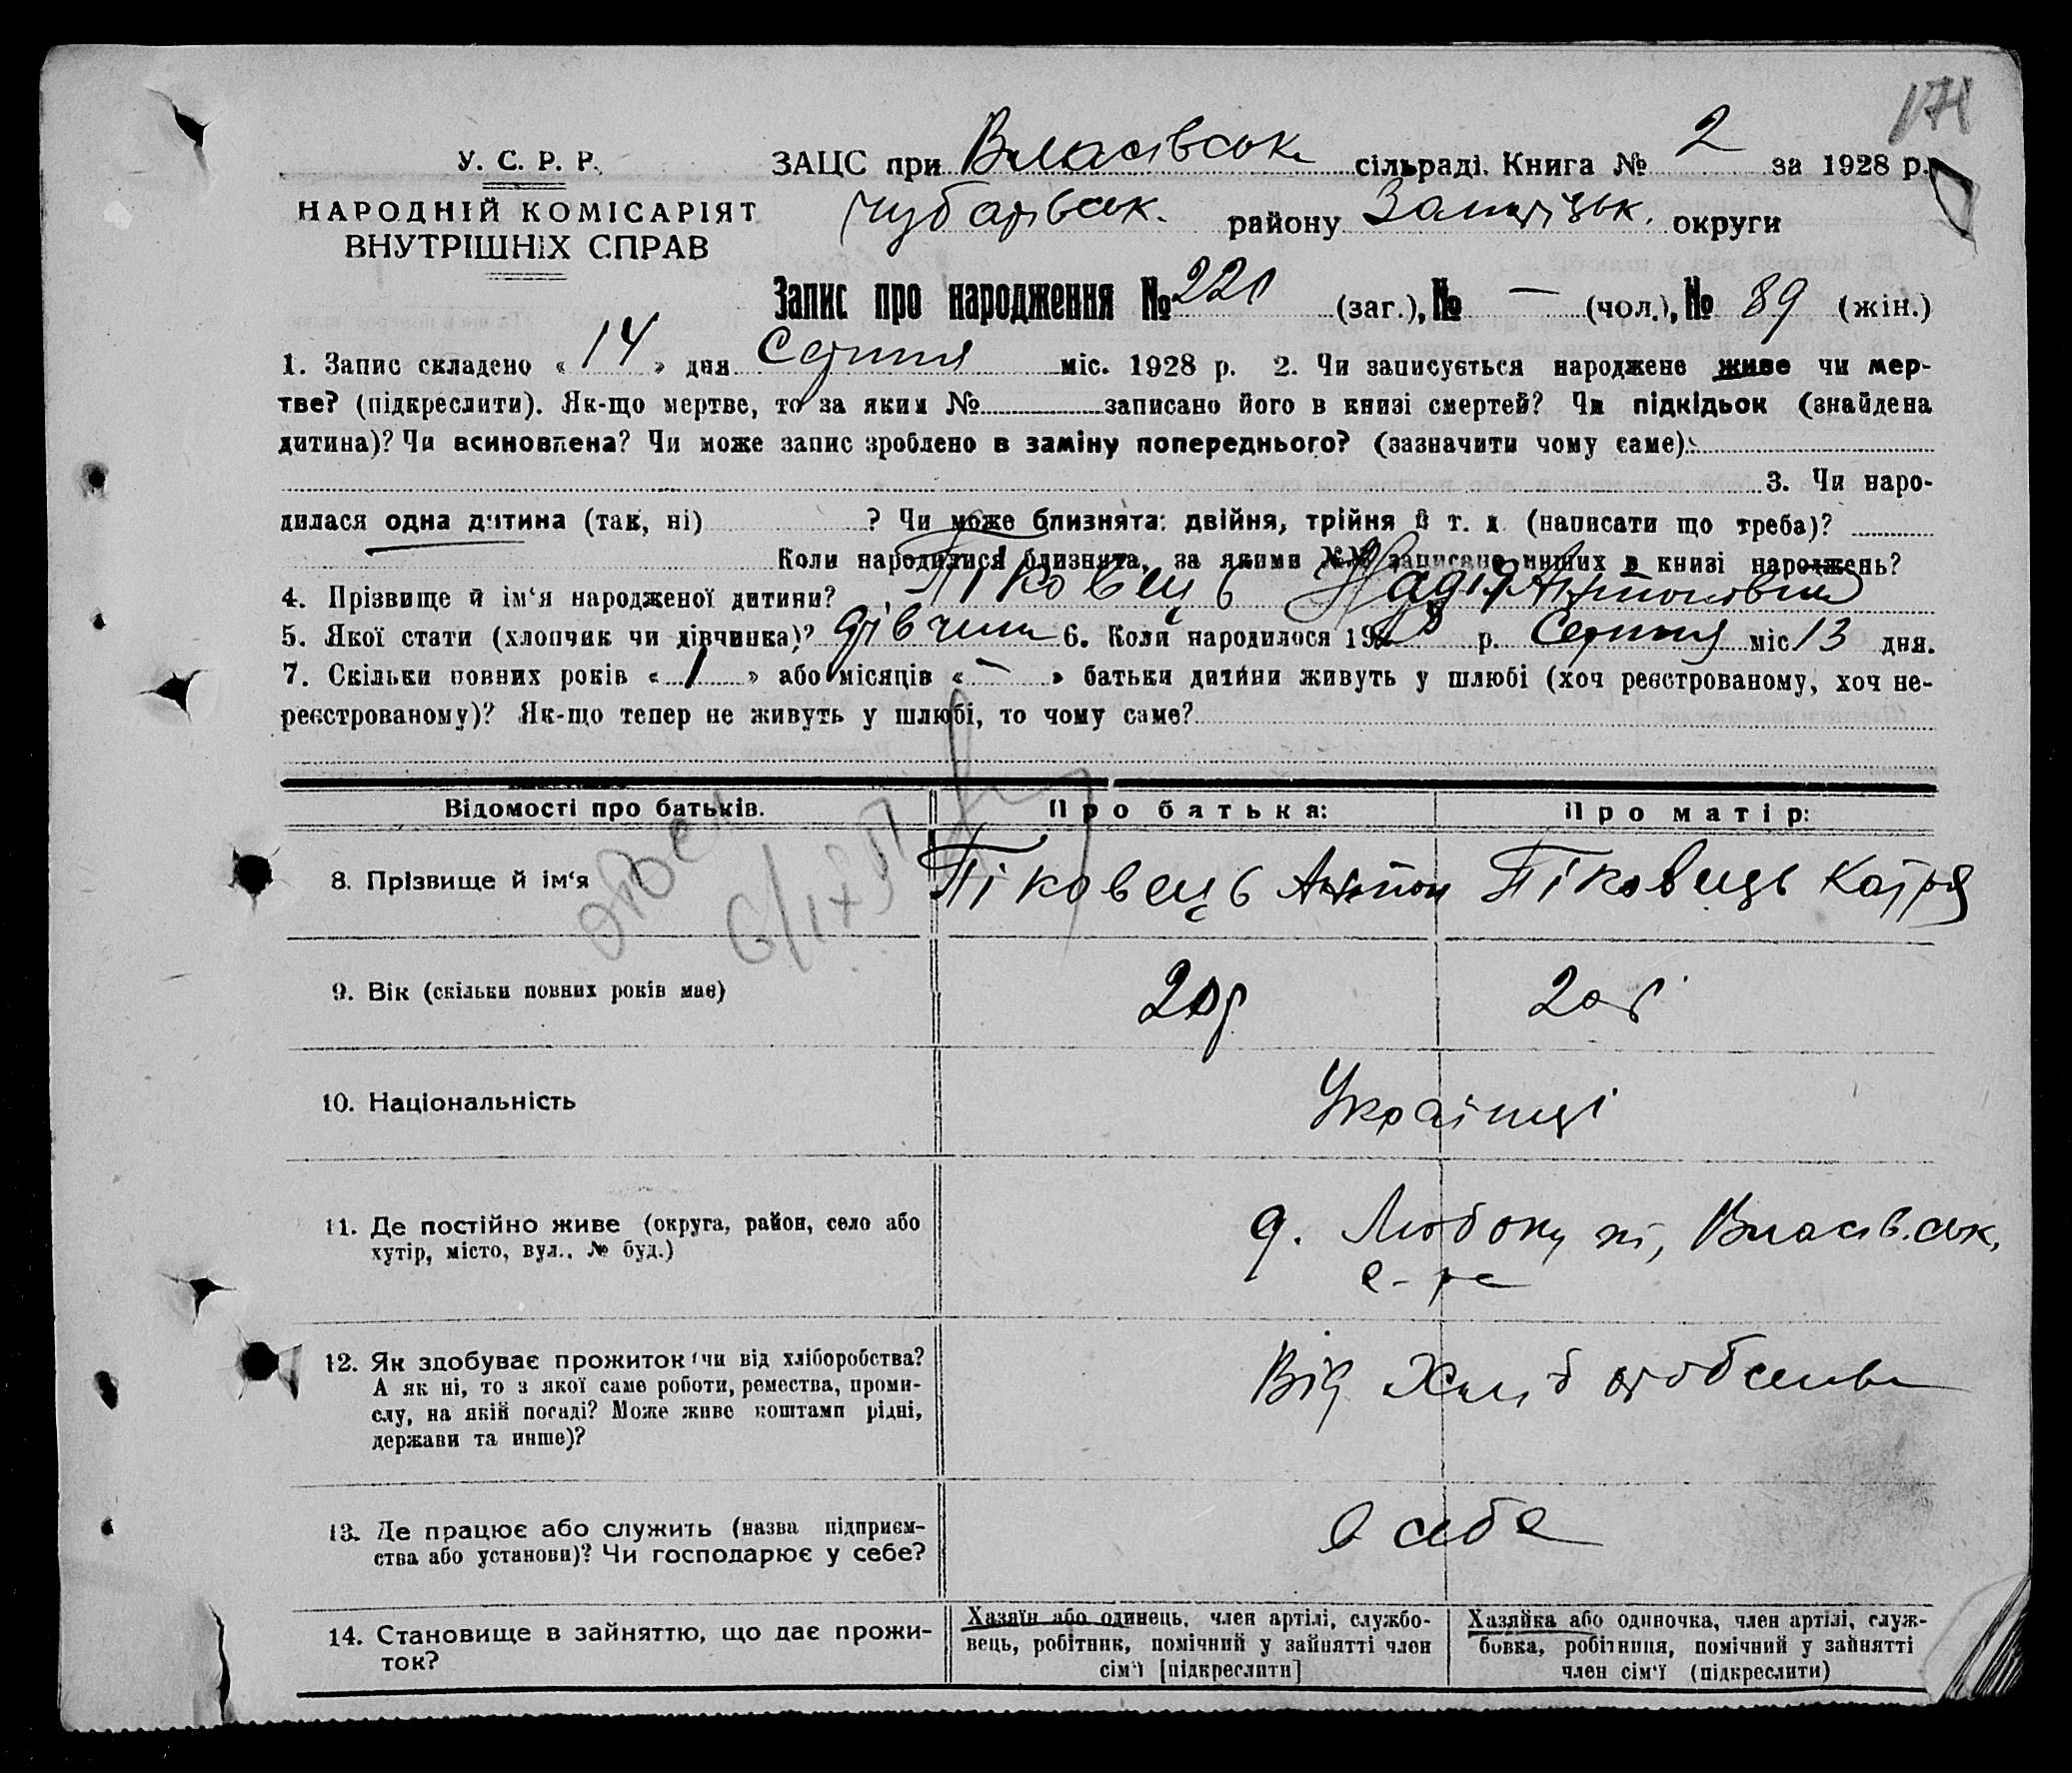 171
У. С. Р. Р. ЗАЦС при Власівськ сільраді. Книга № 2 за 1928 р.
НАРОДНІЙ КОМІСАРІЯТ Чубарівськ. району Запорізьк. округи
ВНУТРІШНІХ СПРАВ
Запис про народження № 220 (заг.), № — (чол.), № 89 (жін.)
1. Запис складено « 14 » дня Серпня міс. 1928 р. 2. Чи записується народжене живе чи мер-
тве? (підкреслити). Як-що мертве, то за яким № записано його в книзі смертей? Чи підкідьок (знайдена
дитина)? Чи всиновлена? Чи може запис зроблено в заміну попереднього? (зазначити чому саме):
3. Чи наро-
дилася одна дитина (так, ні) ? Чи може близнята: двійня, трійня й т. д. (написати що треба)?
Коли народилися близнята, за якими №№ записано инших в книзі народжень?
4. Прізвище й ім'я народженої дитини? Піковець Надія Антонівна
5. Якої стати (хлопчик чи дівчинка)? дівчина 6. Коли народилося 1928 р. Серпня міс 13 дня.
7. Скільки повних років « 1 » або місяців « — » батьки дитини живуть у шлюбі (хоч реєстрованому, хоч не-
реєстрованому)? Як-що тепер не живуть у шлюбі, то чому саме?
Відомості про батьків. Про батька: Про матір:
8. Прізвище й ім'я Піковець Антон Піковець Катря
6/IX
9. Вік (скільки повних років має) 20р 20р
10. Національність Українці
11. Де постійно живе (округа, район, село або д. Любокут, Власівськ.
хутір, місто, вул., № буд.) с-ра
12. Як здобуває прожиток (чи від хліборобства? Від Хліборобства
А як ні, то з якої саме роботи, ремества, проми-
слу, на якій посаді? Може живе коштами рідні,
держави та инше)?
13. Де працює або служить (назва підприєм- в себе
ства або установи)? Чи господарює у себе?
14. Становище в зайняттю, що дає прожи-
ток?
Хазяїн або одинець, член артілі, службо-
вець, робітник, помічний у зайнятті член
сім'ї [підкреслити]
Хазяйка або одиночка, член артілі, служ-
бовка, робітниця, помічний у зайнятті
член сім'ї (підкреслити)